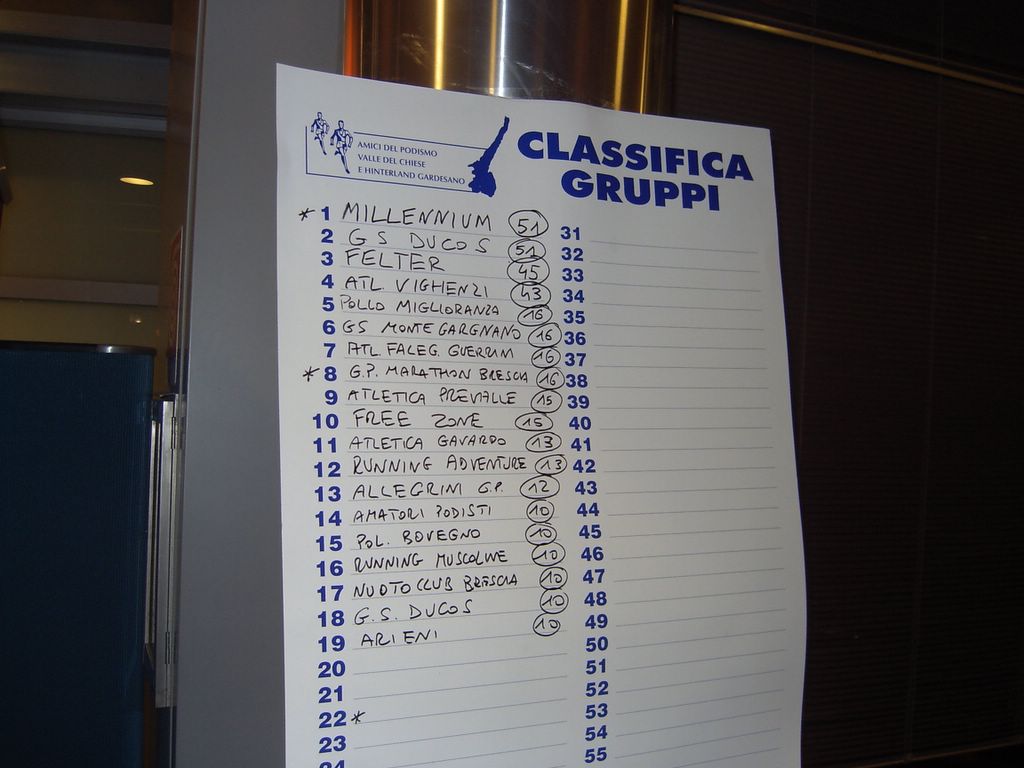 AMICI DEL PODISMO
VALLE DEL CHIESE
E HINTERLAND GARDESANO
CLASSIFICA
GRUPPI
* 1 MILLENNIUM 51
2 GS DUCOS 51
3 FELTER 45
4 ATL VIGHENZI 43
5 POLLO MIGLIORANZA 16
6 GS MONTEGARGNANO 16
7 ATL FALEG. GUERRINI 16
* 8 G.P. MARATHON BRESCIA 16
9 ATLETICA PREVALLE 15
10 FREE ZONE 15
11 ATLETICA GAVARDO 13
12 RUNNING ADVENTURE 13
13 ALLEGRINI G.P. 12
14 AMATORI PODISTI 10
15 POL. BOVEGNO 10
16 RUNNING MUSCOLINE 10
17 NUOTO CLUB BRESCIA 10
18 G.S. DUCOS 10
19 ARIENI 10
20
21
22 *
23
24
31
32
33
34
35
36
37
38
39
40
41
42
43
44
45
46
47
48
49
50
51
52
53
54
55